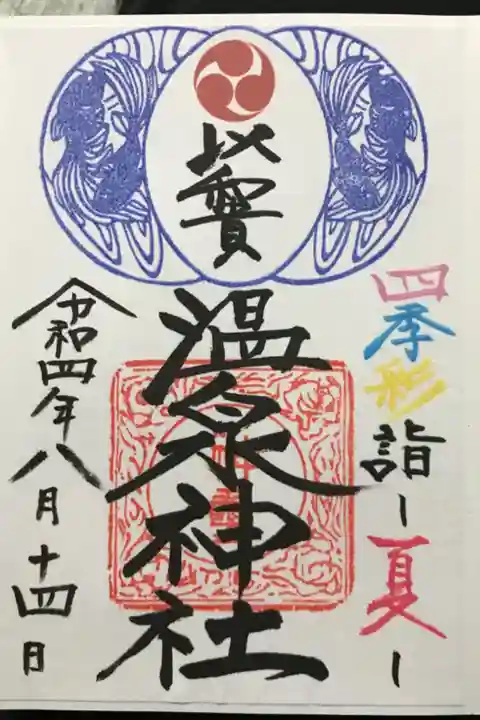 四季彩詣 ー夏ー
温泉神社
令和四年八月十四日